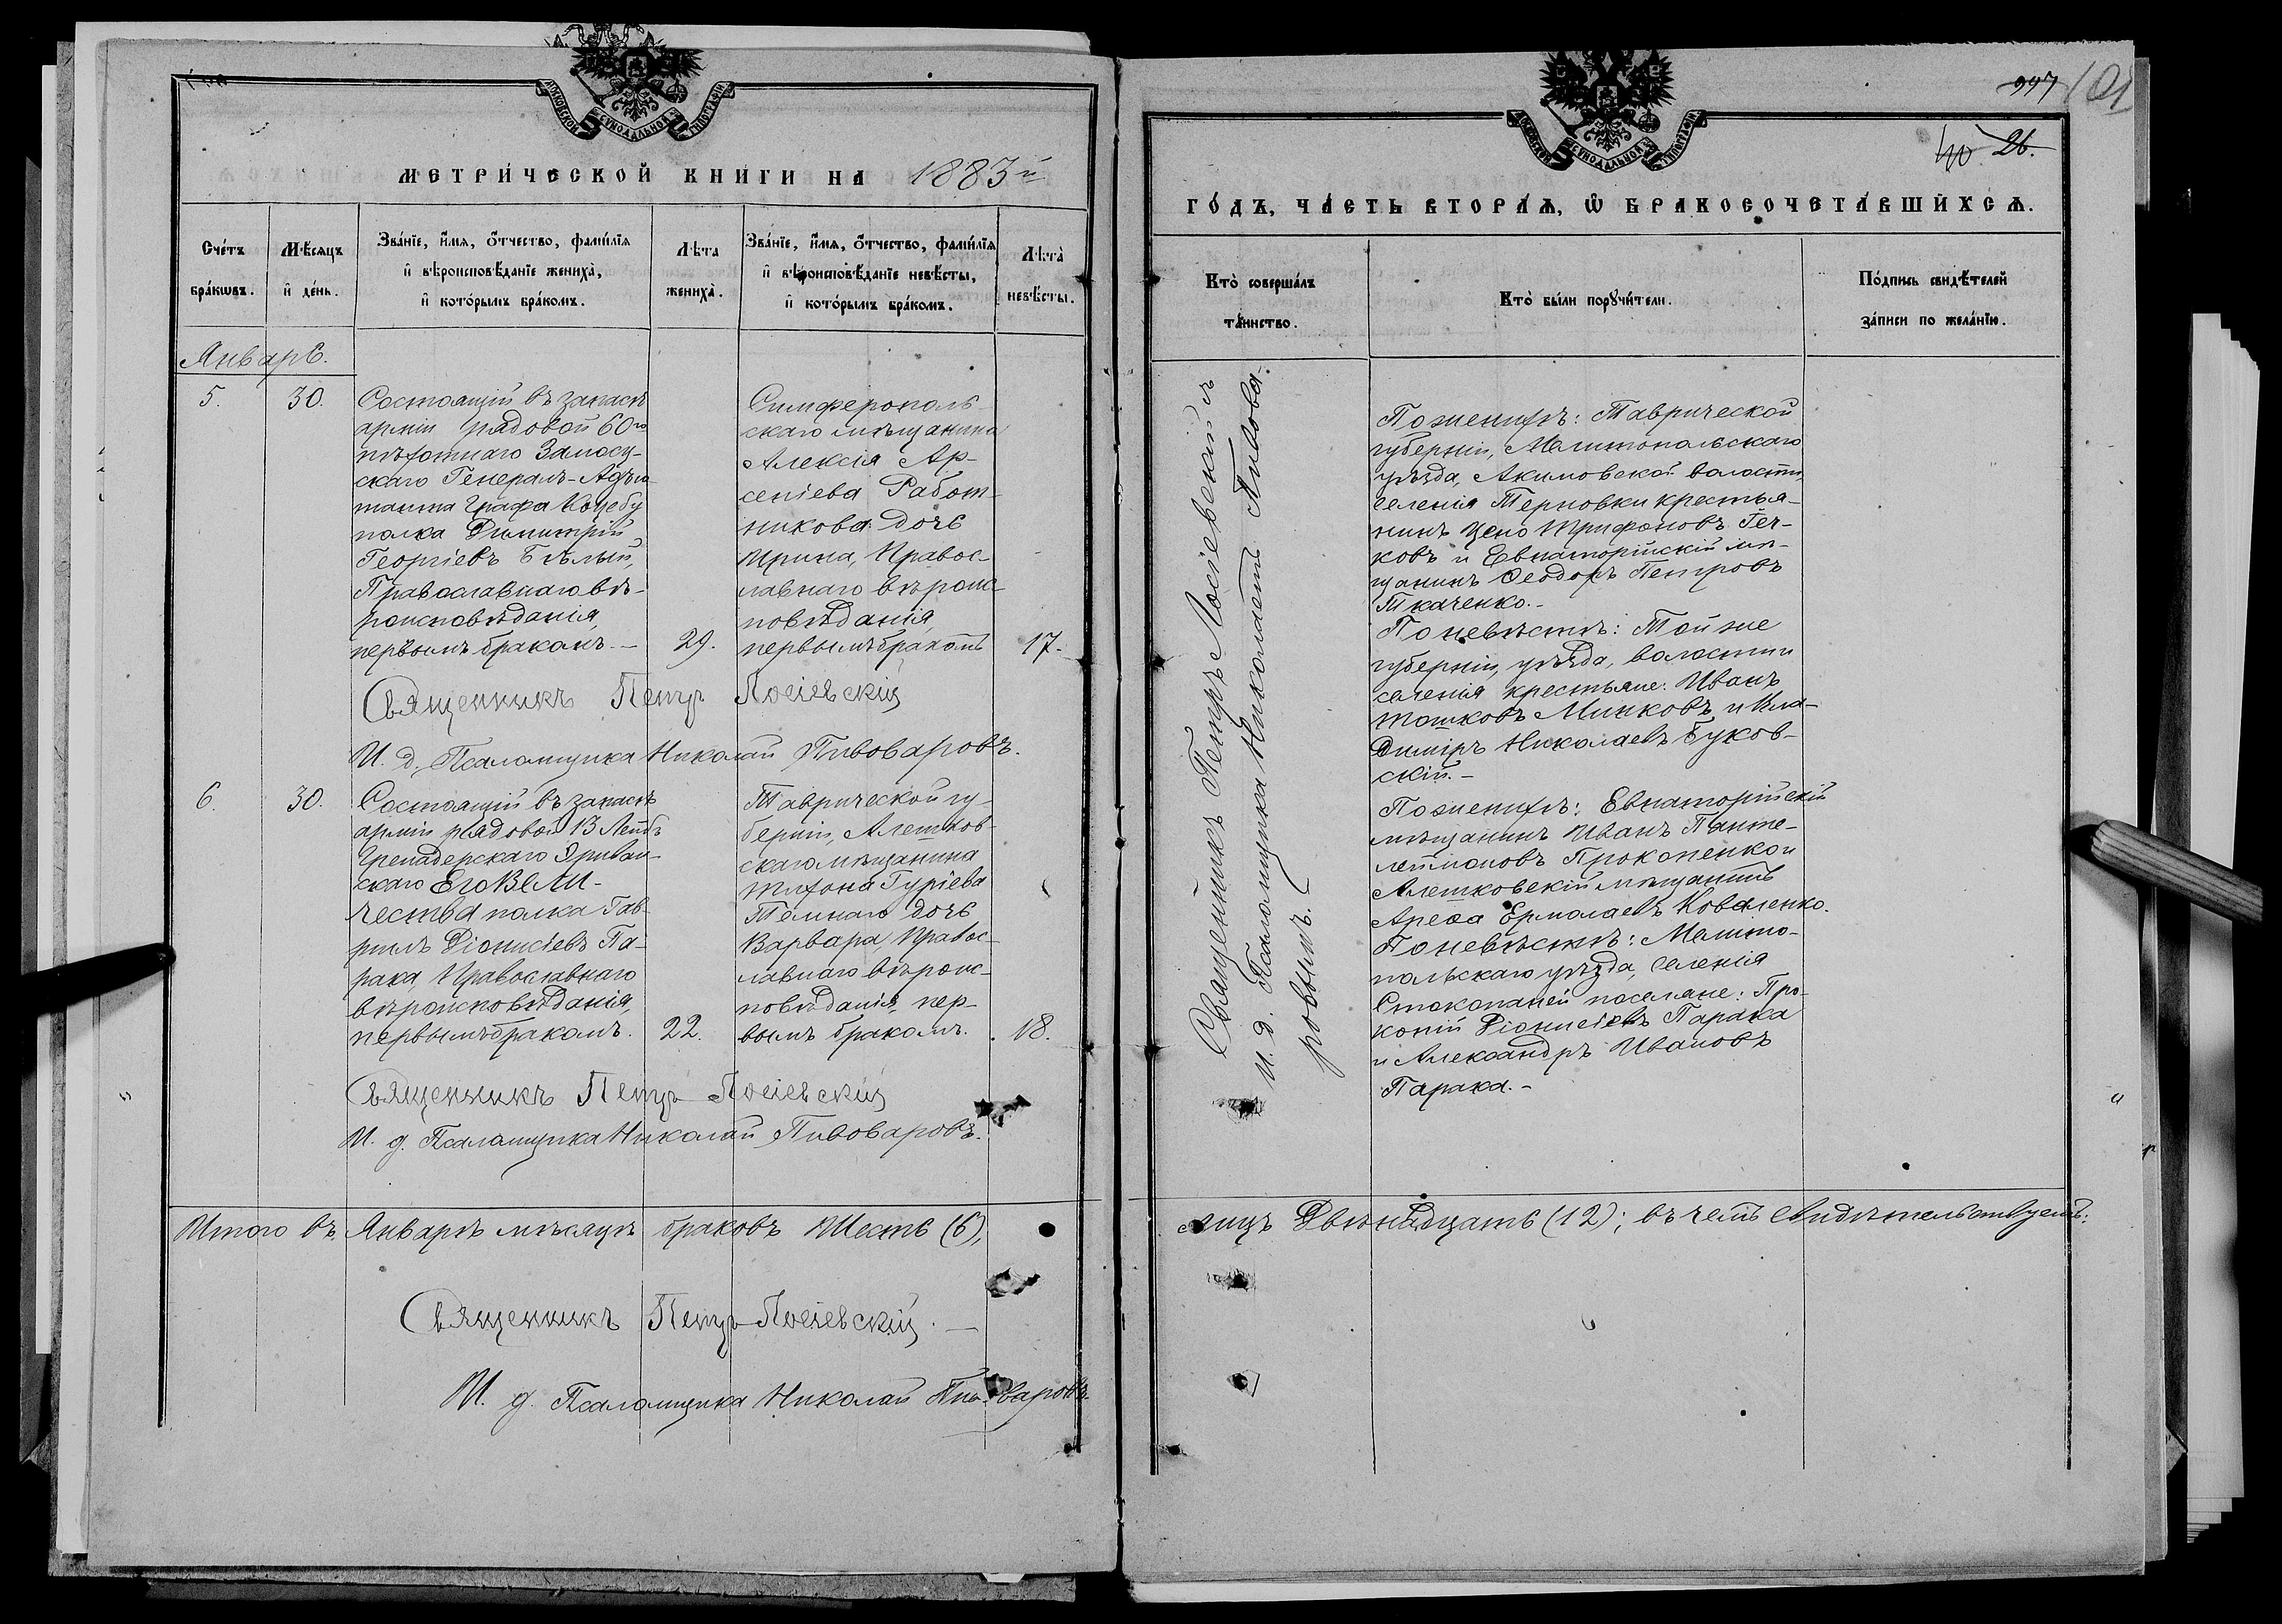 МОСКОВСКОЙ СѴНОДАЛЬНОЙ ТІПОГРАФІИ
МЕТРИ́ЧЕСКОЙ КНИГИ НА 1883й
Сче́тъ бра́кѡвъ.
Мѣ́сяцъ и҆ де́нь.
Зва́нїе, и҆́мя, ѻ҆́тчество, фами́лїя
и҆ вѣроисповѣ́данїе жениха̀,
и҆ кото́рымъ бра́комъ.
Лѣ́та
жениха̀.
Зва́нїе, и҆́мя, ѻ҆́тчество, фамилїя
и҆ вѣроисповѣ́данїе невѣ́сты,
и҆ кото́рымъ бра́комъ.
Лѣта̀
невѣ́сты.
Январь.
5.
30.
Состоящій въ запасѣ
арміи рядовой 60го
пѣхотнаго Замосц-
скаго Генералъ-Адъю-
танта Графа Коцебу
полка Димитрій
Георгіевъ Бѣлый,
Православнаго вѣ-
роисповѣданія,
первымъ бракомъ.-
29.
Симферополь-
скаго мѣщанина
Алексія Ар-
сеніева Работ-
никова дочь
Ирина, Правос-
лавнаго вѣроис-
повѣданія,
первымъ бракомъ
17.
Священникъ Петръ Лосіевскій
И. д. Псаломщика Николай Пивоваровъ.
6.
30.
Состоящій въ запасѣ
арміи рядовой 13 Лейбъ
Гренадерскаго Эриван-
скаго Его Вели-
чества полка Гав-
риилъ Діонисіевъ Па-
рака, Православнаго
вѣроисповѣданія,
первымъ бракомъ.
22.
Таврической гу-
берніи, Алешков-
скаго мѣщанина
Тихона Гуріева
Темнаго дочь
Варвара, Правос-
лавнаго вѣроис-
повѣданія, пер-
вымъ бракомъ.
18.
Священникъ Петръ Лосіевскій
И. д. Псаломщика Николай Пивоваровъ.
Итого въ Январѣ мѣсяцѣ браковъ Шесть (6),
Священникъ Петръ Лосіевскій.-
И. д. Псаломщика Николай Пивоваровъ.
МОСКОВСКОЙ СѴНОДАЛЬНОЙ ТІПОГРАФІИ
997
101
40
26.
ГО́ДЪ, ЧА́СТЬ ВТОРА́Ѧ, Ѡ҆ БРАКОСОЧЕТА́ВШИХСѦ.
Кто̀ соверша́лъ
та́инство.
Кто̀ бы́ли порꙋчи́тели.
По́дпись свидѣ́телей
за́писи по жела́нїю.
Священникъ Петръ Лосіевскій съ
И. д. Псаломщика Николаемъ Пивова-
ровымъ.
По женихѣ: Таврической
губерніи, Мелитопольскаго
уѣзда, Акимовской волости,
селенія Терновки крестья-
нинъ Цено Трифоновъ Геч-
ковъ и Евпаторійскій мѣ-
щанинъ Ѳеодоръ Петровъ
Ткаченко.-
По невѣстѣ: Той же
губерніи, уѣзда, волости и
селенія крестьяне: Иванъ
Тошковъ Минковъ и Вла-
диміръ Николаевъ Буков-
скій.-
По женихѣ: Евпаторійскій
мѣщанинъ Иванъ Панте-
леймоновъ Прокопенко и
Алешковскій мѣщанинъ
Ареѳа Ермолаевъ Коваленко.
По невѣстѣ: Мелито-
польскаго уѣзда, селенія
Стокопаней поселяне: Про-
копій Діонисіевъ Парака
и Александръ Ивановъ
Парака.-
лицъ Двѣнадцать (12); въ чемъ свидѣтельствуемъ: